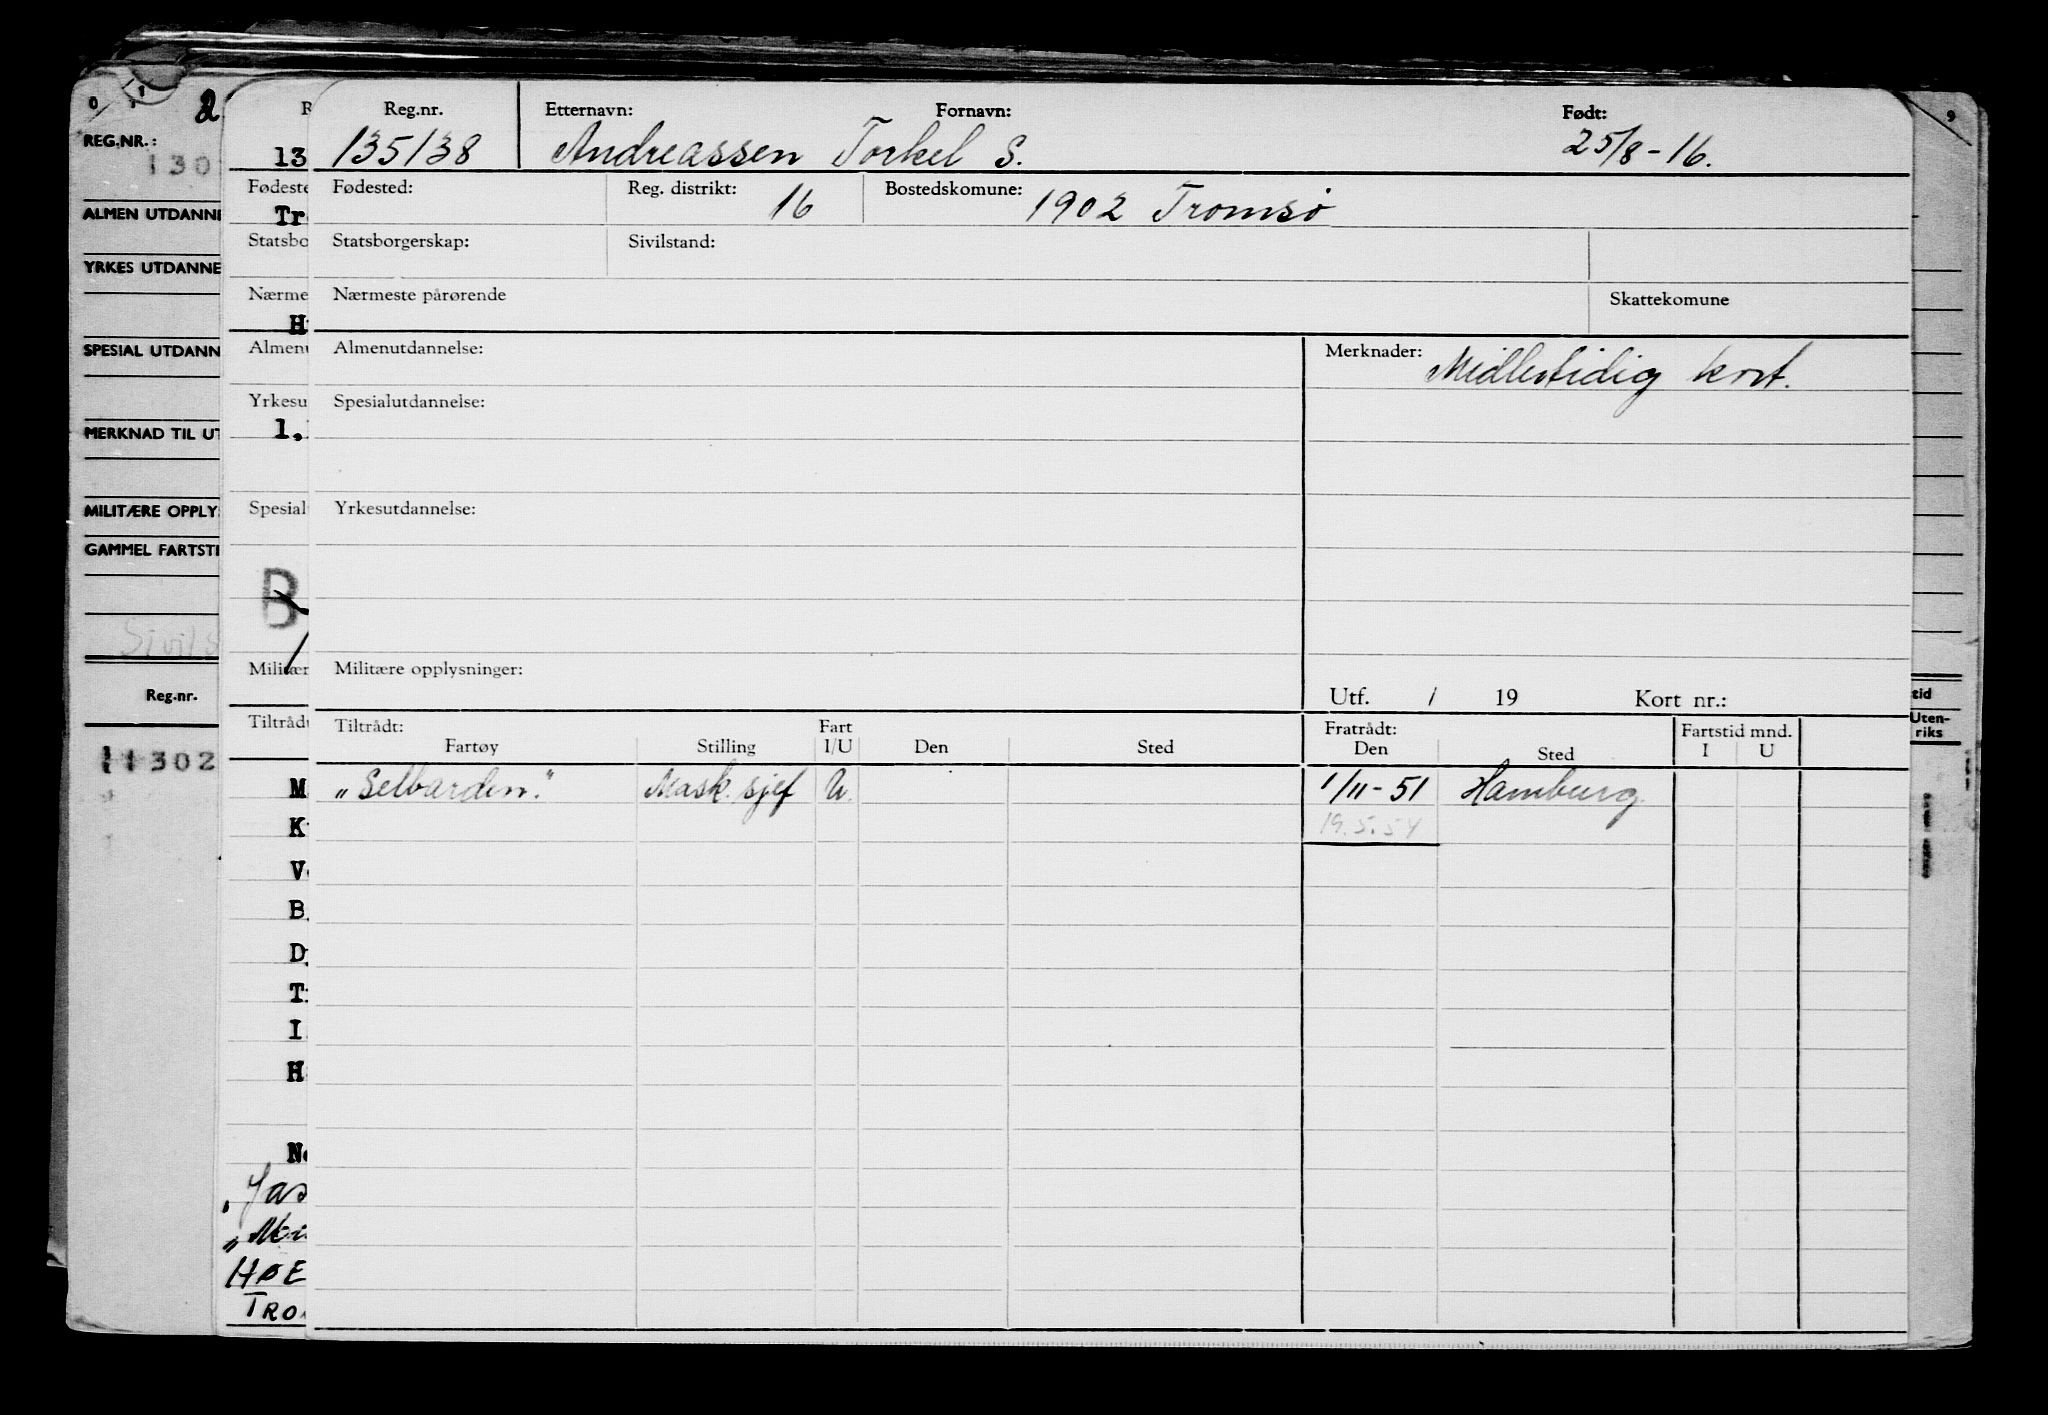 Reg.nr. Etternavn: Fornavn: Født:
135138 Andreassen Torkel S. 25/8-16.
Fødested: Reg. distrikt: 16 Bostedskomune: 1902 Tromsø
Statsborgerskap: Sivilstand:
Nærmeste pårørende Skattekomune
Almenutdannelse: Merknader: Midlertidig kort.
Spesialutdannelse:
Yrkesutdannelse:
Militære opplysninger: Utf. / 19 Kort nr.:
Tiltrådt: Fart Fratrådt: Fartstid mnd.
Fartøy Stilling I/U Den Sted Den Sted I U
"Selbardin." Mask. sjef U. 1/11-51 Hamburg.
19.5.54
2
REG.NR.:
130
ALMEN UTDANNE
YRKES UTDANNE
SPESIAL UTDANN
MERKNAD TIL UT
MILITÆRE OPPLY
GAMMEL FARTSTI
Sivils
Reg.nr.
11302
R
13
Fødeste
Tr
Statsbo
Nærme
H
Almenu
Yrkesu
1,
Spesial
B
Militær
Tiltråd
M
K
V
B
D
T
I
H
N
"Jas
HØE
TRO
9
tid
Uten-
riks